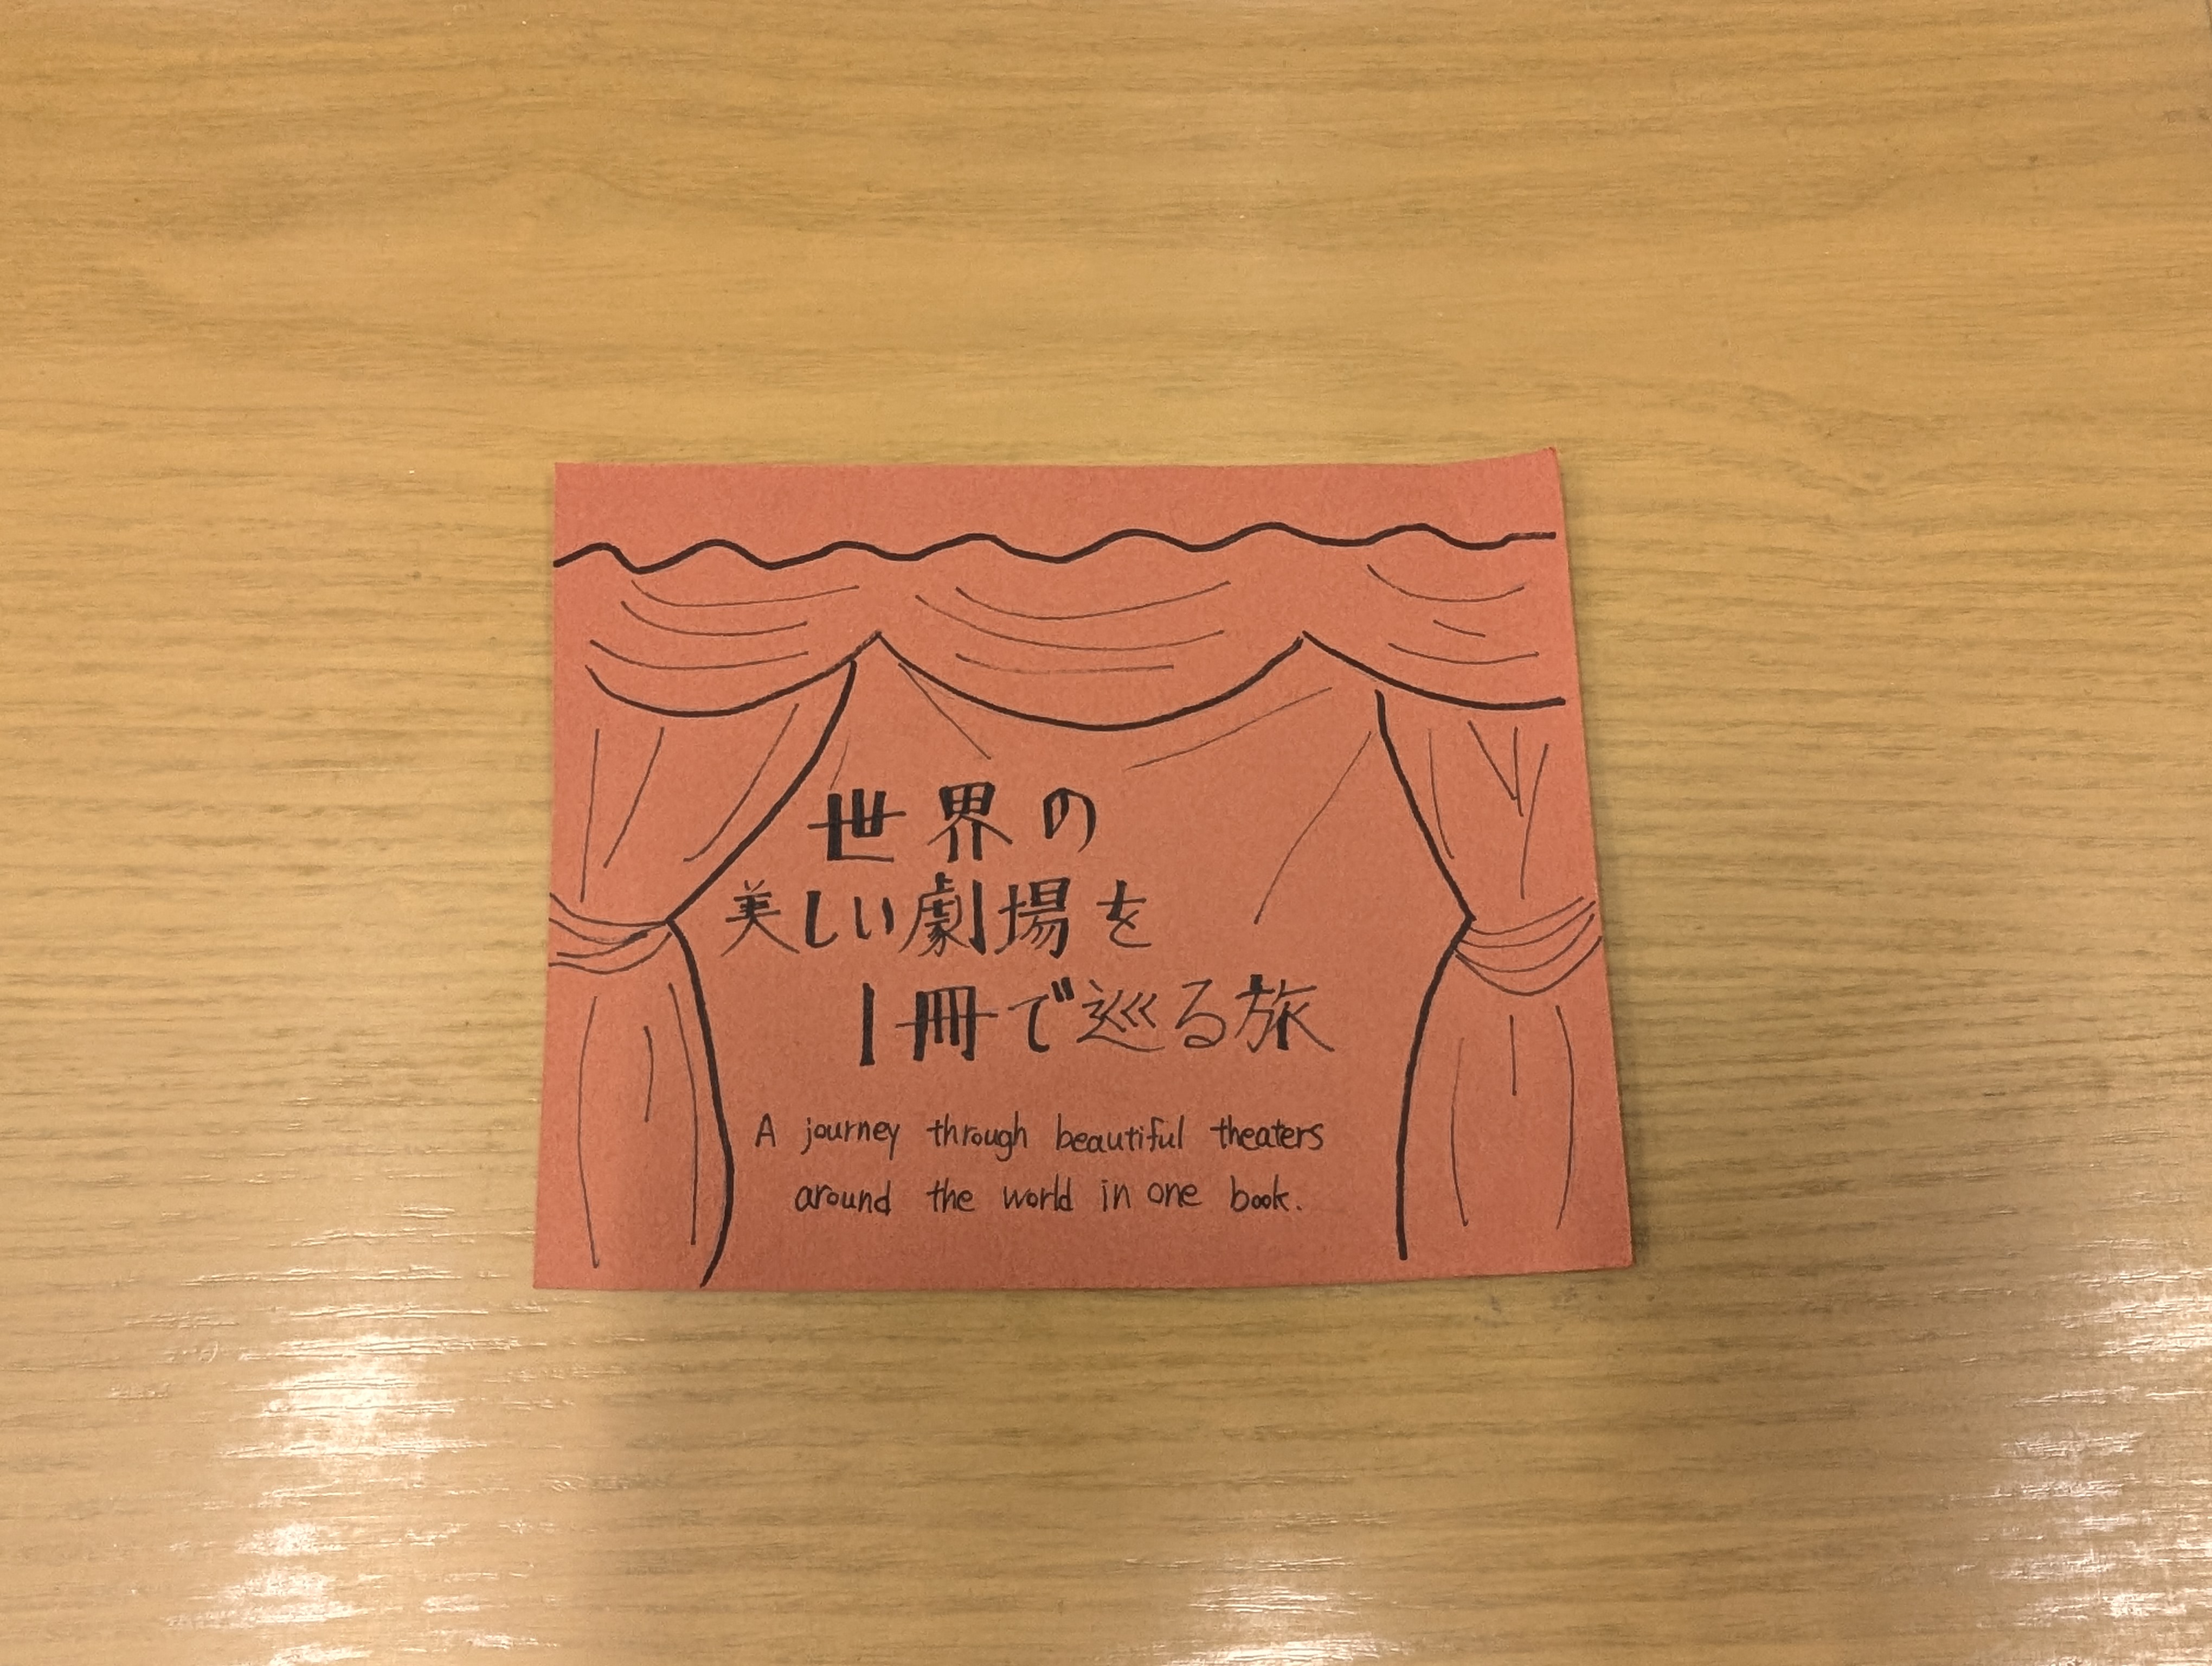 世界の
美しい劇場を
1冊で巡る旅
A journey through beautiful theaters
around the world in one book.